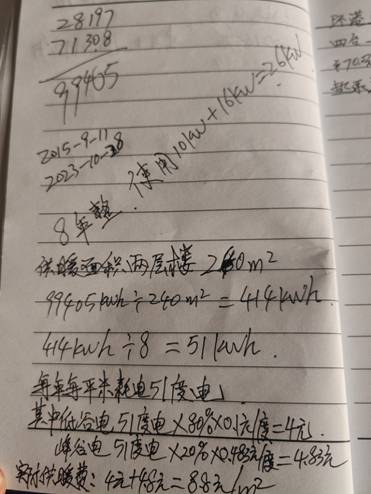 28197
71308
99405
2015-9-11
2023-10-28
8年整.
使用10kw+16kw=26kw
供暖面积两层楼 240m²
99405kwh÷240m²=414kwh.
414kwh÷8=51kwh.
每年每平米耗电51度电
其中低谷电51度电×80%×0.1元/度=4元.
峰谷电 51度电×20%×0.483元/度=4.83元
实际供暖费: 4元+4.8元=8.8元/m²
环港
四台